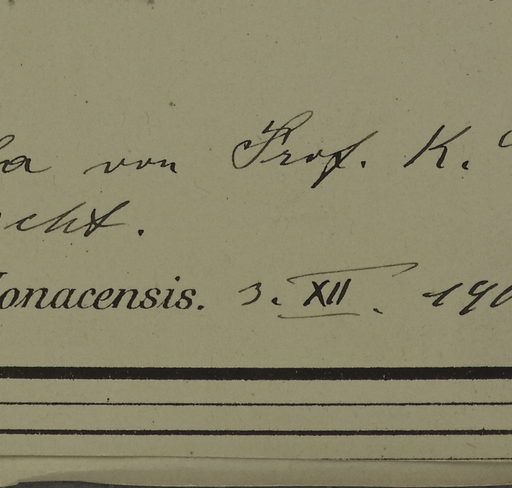 von Prof. K.
cht.
onacensis. 3. XII. 190